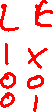 L E
1 X
0 0
0 1